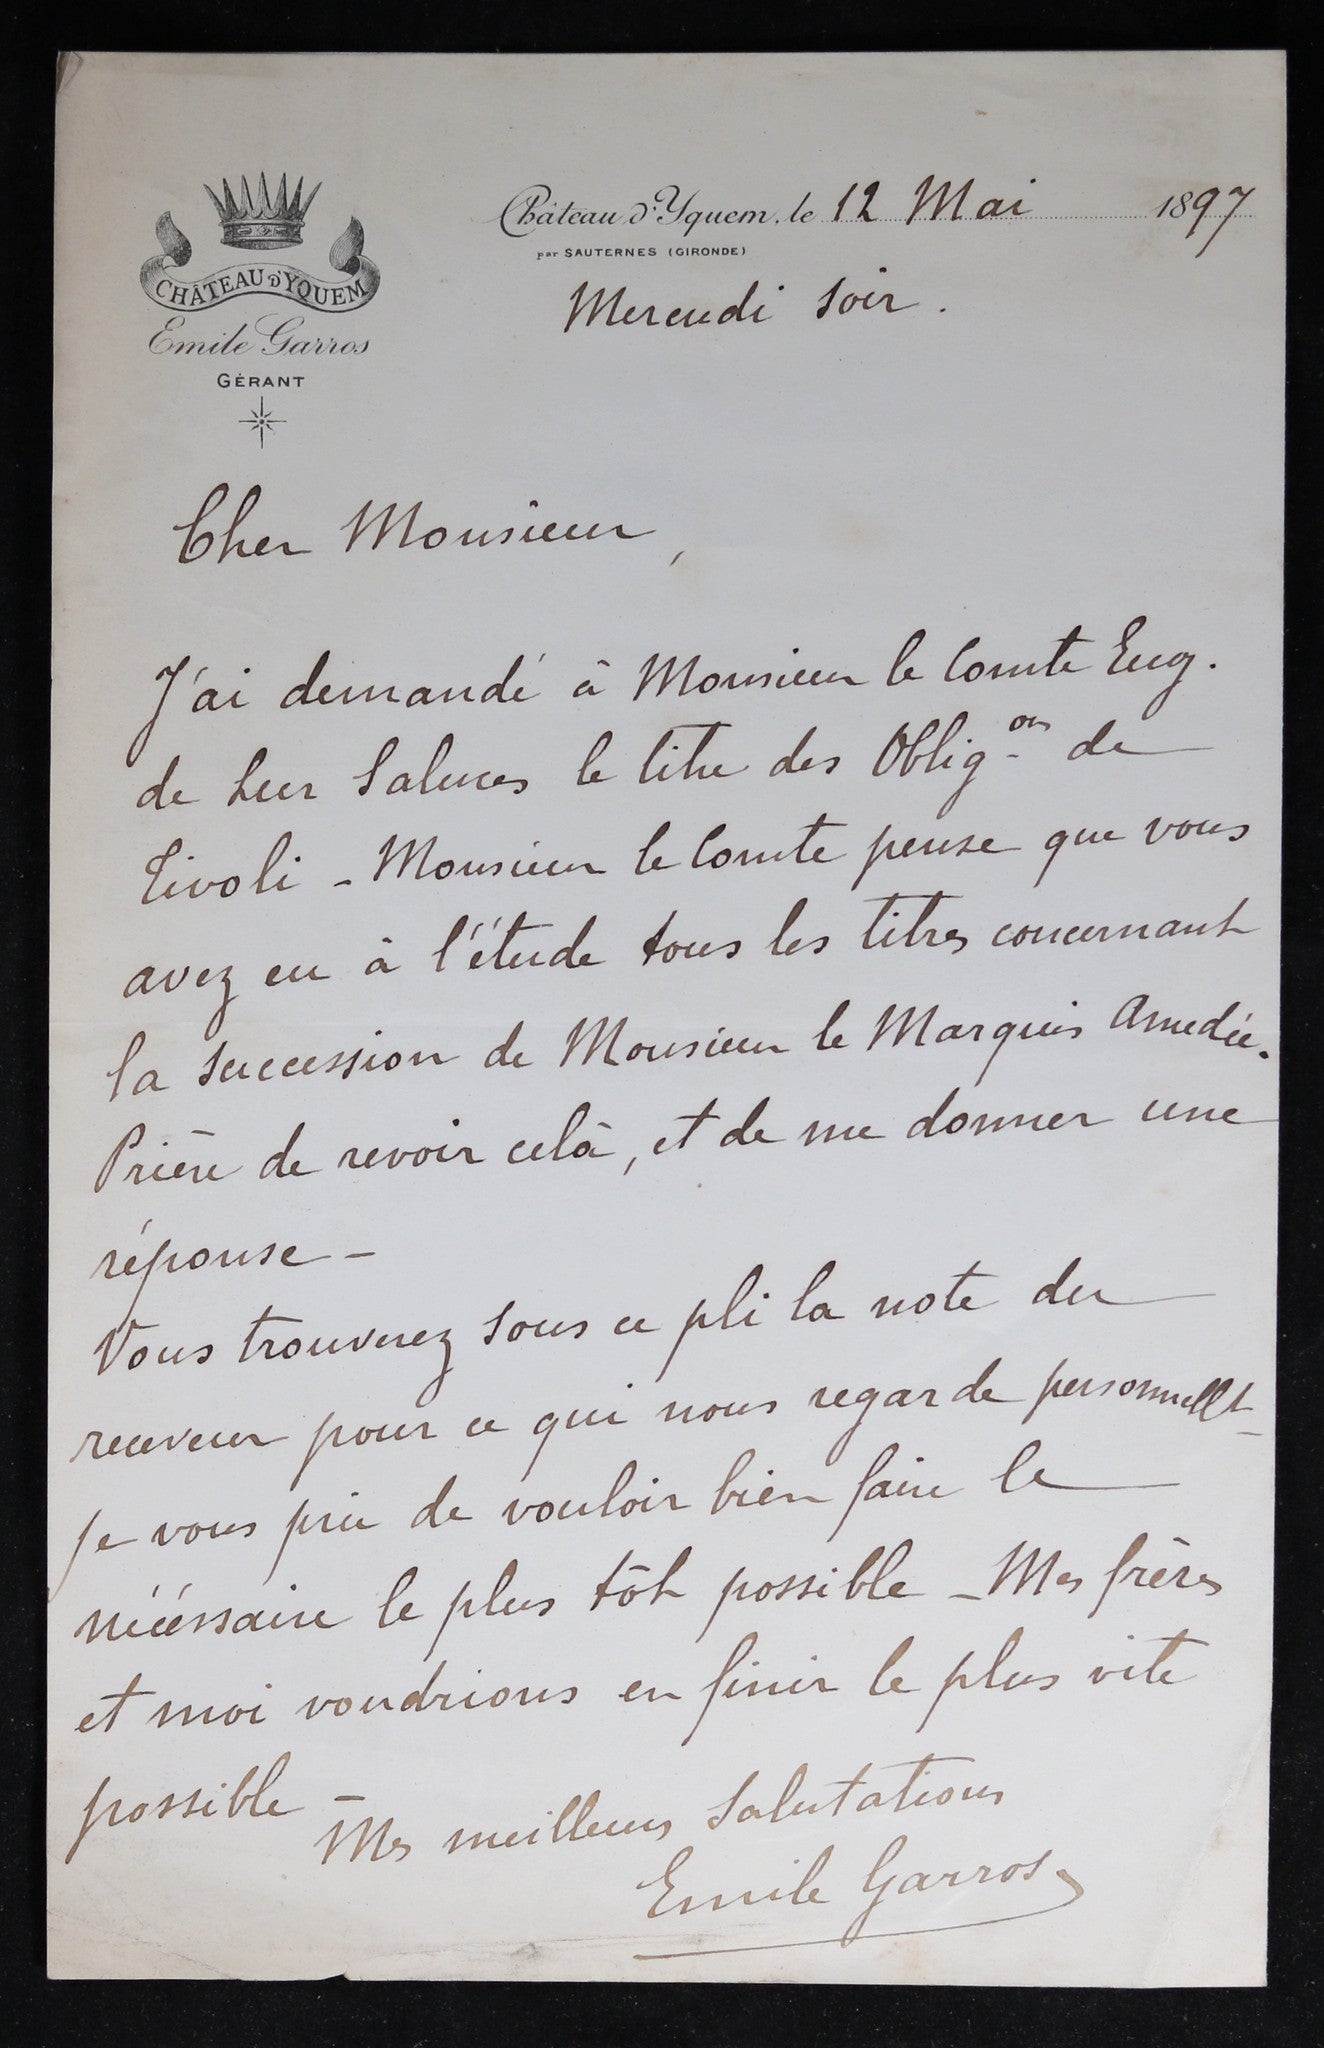 CHÂTEAU D'YQUEM
Emile Garros
GÉRANT
Château d'Yquem, le 12 Mai 1897
par SAUTERNES (GIRONDE)
Mercredi soir.
Cher Monsieur,
J'ai demandé à Monsieur le Comte Eug.
de Lur Saluces le titre des Oblig.ons de
Tivoli - Monsieur le Comte pense que vous
avez eu à l'étude tous les titres concernant
la succession de Monsieur le Marquis Amédée.
Prière de revoir celà, et de me donner une
réponse -
Vous trouverez sous ce pli la note du
receveur pour ce qui nous regarde personnellt -
je vous prie de vouloir bien faire le
nécéssaire le plus tôt possible - Mes frères
et moi voudrions en finir le plus vite
possible -
Mes meilleures Salutations
Emile Garros